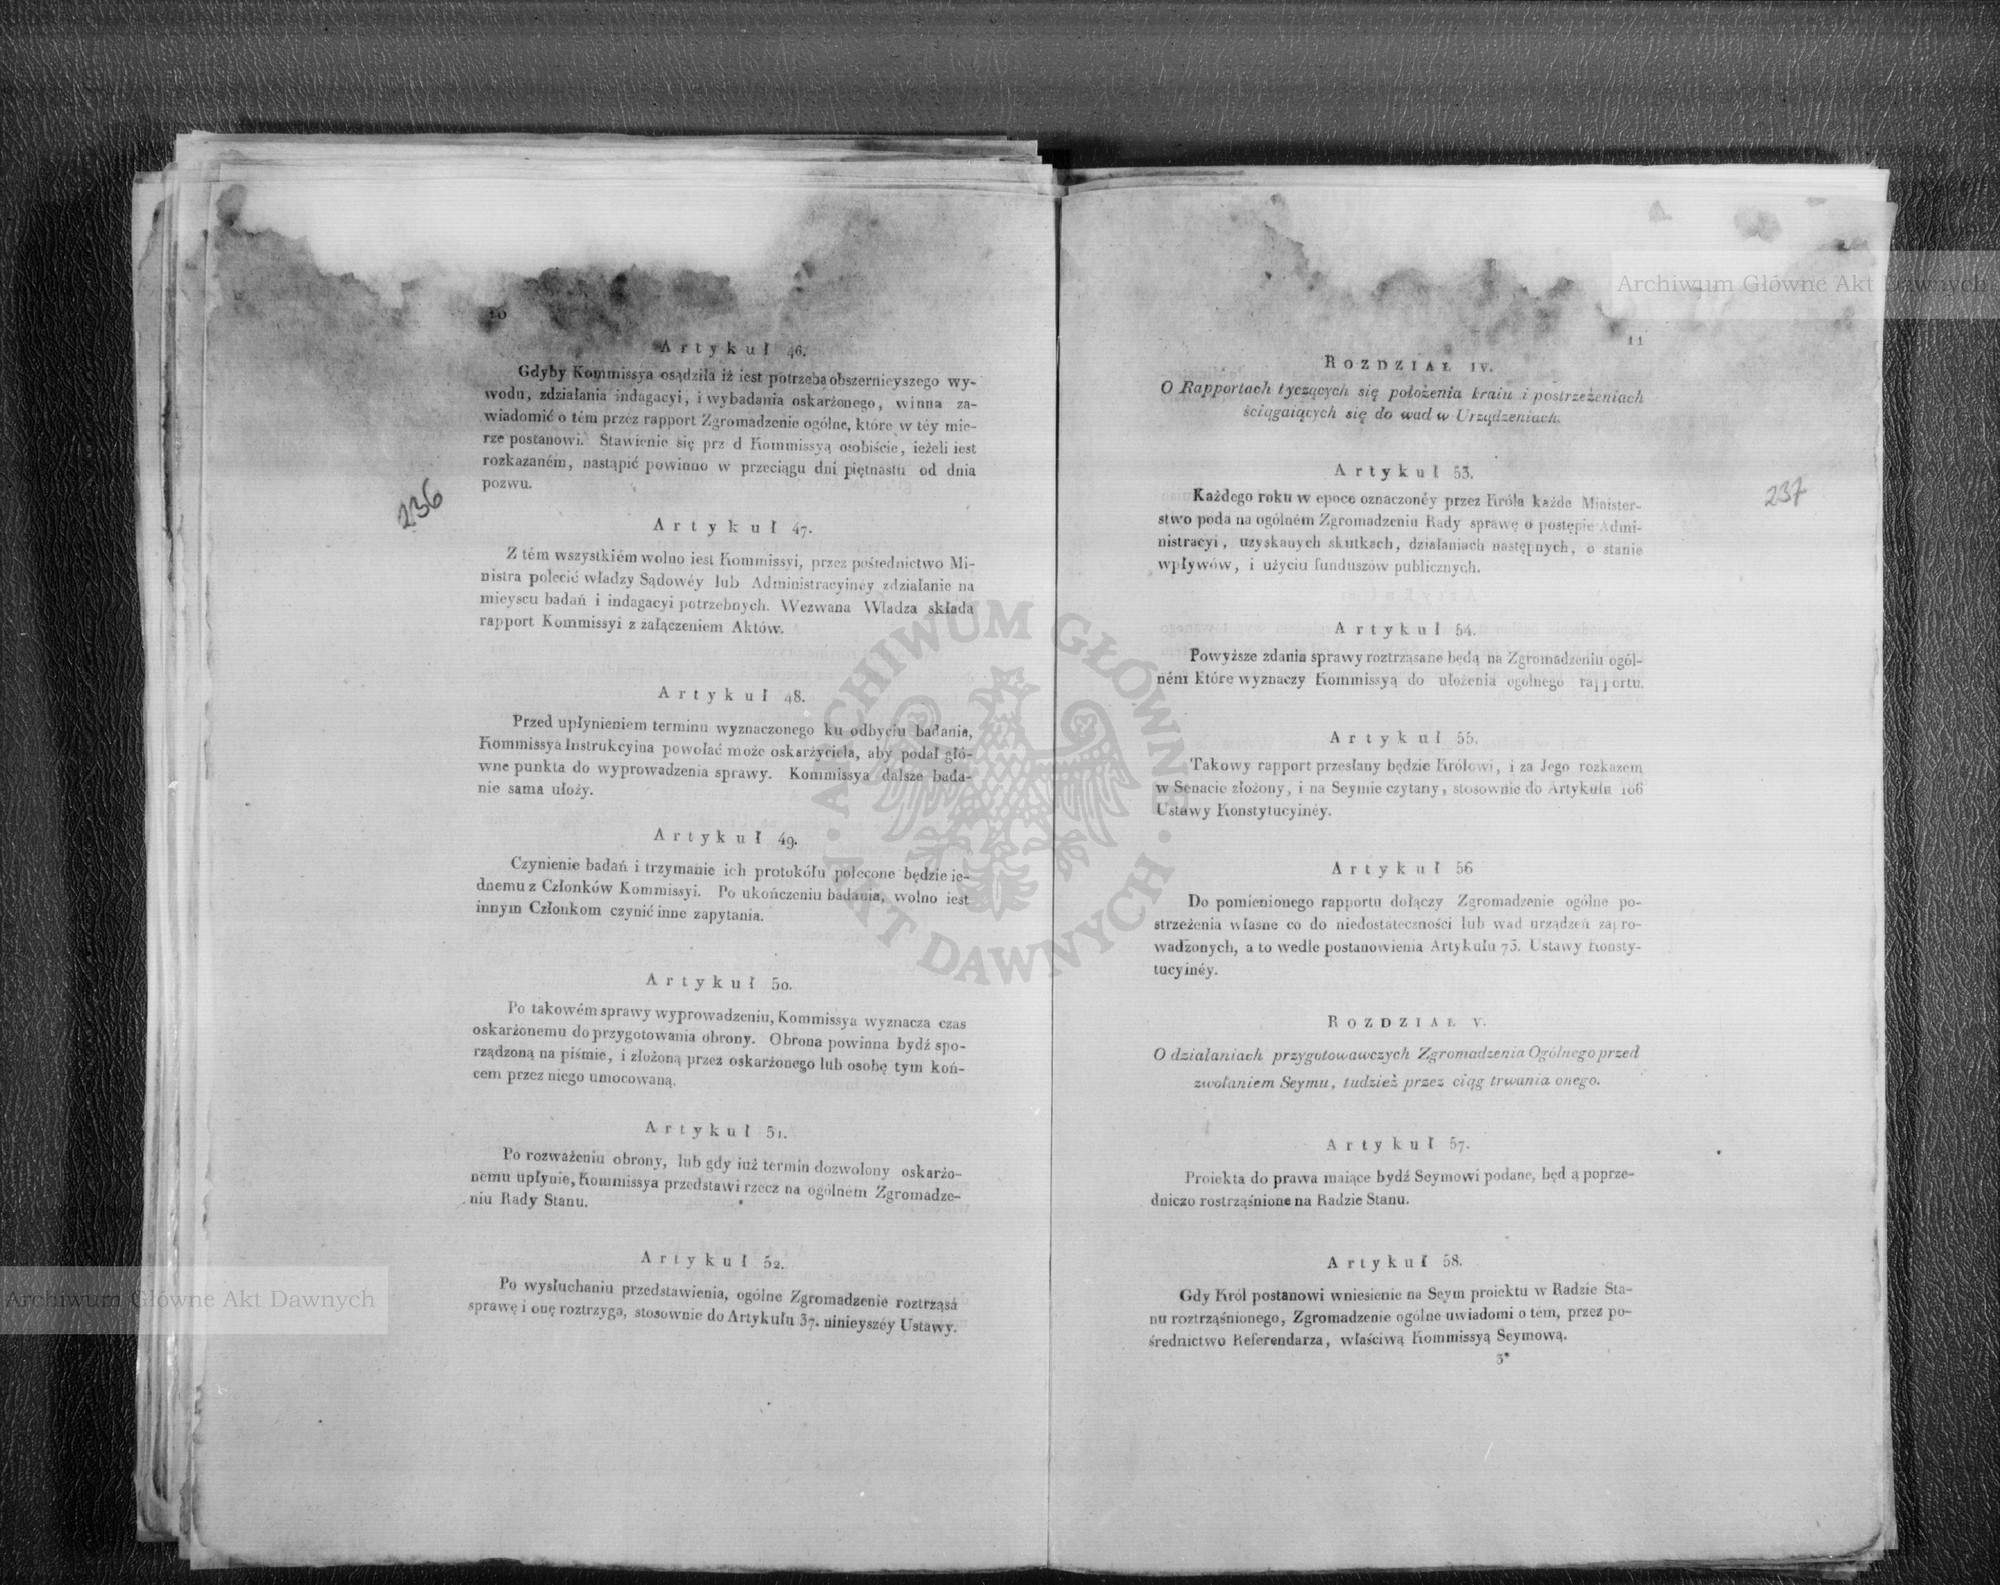 10
Artykuł 46.
Gdyby Kommissya osądziła iż iest potrzeba obszernieyszego wy-
wodu, zdziałania indagacyi, i wybadania oskarżonego, winna za-
wiadomić o tém przez rapport Zgromadzenie ogólne, które w téy mie-
rze postanowi. Stawienie się prz d Kommissyą osobiście, ieżeli iest
rozkazaném, nastąpić powinno w przeciągu dni piętnastu od dnia
pozwu.
236
Artykuł 47.
Z tém wszystkiém wolno iest Kommissyi, przez pośrednictwo Mi-
nistra polecić władzy Sądowéy lub Administracyinéy zdziałanie na
mieyscu badań i indagacyi potrzebnych. Wezwana Władza składa
rapport Kommissyi z załączeniem Aktów.
Artykuł 48.
Przed upłynieniem terminu wyznaczonego ku odbyciu badania,
Kommissya Instrukcyina powołać może oskarżyciela, aby podał głó-
wne punkta do wyprowadzenia sprawy. Kommissya dalsze bada-
nie sama ułoży.
Artykuł 49.
Czynienie badań i trzymanie ich protokółu polecone będzie ie-
dnemu z Członków Kommissyi. Po ukończeniu badania, wolno iest
innym Członkom czynić inne zapytania.
Artykuł 50.
Po takowém sprawy wyprowadzeniu, Kommissya wyznacza czas
oskarżonemu do przygotowania obrony. Obrona powinna bydź spo-
rządzoną na piśmie, i złożoną przez oskarżonego lub osobę tym koń-
cem przez niego umocowaną.
Artykuł 51.
Po rozważeniu obrony, lub gdy iuż termin dozwolony oskarżo-
nemu upłynie, Kommissya przedstawi rzecz na ogólném Zgromadze-
niu Rady Stanu.
Artykuł 52.
Po wysłuchaniu przedstawienia, ogólne Zgromadzenie roztrząsa
sprawę i onę roztrzyga, stosownie do Artykułu 37. ninieyszéy Ustawy.
11
ROZDZIAŁ IV.
O Rapportach tyczących się położenia kraiu i postrzeżeniach
ściągaiących się do wad w Urządzeniach.
Artykuł 53.
Każdego roku w epoce oznaczonéy przez Króla każde Minister-
stwo poda na ogólném Zgromadzeniu Rady sprawę o postępie Admi-
nistracyi, uzyskanych skutkach, działaniach następnych, o stanie
wpływów, i użyciu funduszów publicznych.
237
Artykuł 54.
Powyższe zdania sprawy roztrząsane będą na Zgromadzeniu ogól-
ném które wyznaczy Kommissyą do ułożenia ogólnego rapportu.
Artykuł 55.
Takowy rapport przesłany będzie Królowi, i za Jego rozkazem
w Senacie złożony, i na Seymie czytany, stosownie do Artykułu 106
Ustawy Konstytucyinéy.
Artykuł 56
Do pomienionego rapportu dołączy Zgromadzenie ogólne po-
strzeżenia własne co do niedostateczności lub wad urządzeń zapro-
wadzonych, a to wedle postanowienia Artykułu 73. Ustawy Konsty-
tucyinéy.
ROZDZIAŁ V.
O działaniach przygotowawczych Zgromadzenia Ogólnego przed
zwołaniem Seymu, tudzież przez ciąg trwania onego.
Artykuł 57.
Proiekta do prawa maiące bydź Seymowi podane, będ ą poprze-
dniczo rostrząśnione na Radzie Stanu.
Artykuł 58.
Gdy Król postanowi wniesienie na Seym proiektu w Radzie Sta-
nu roztrząśnionego, Zgromadzenie ogólne uwiadomi o tem, przez po-
średnictwo Referendarza, właściwą Kommissyą Seymową.
3*
Archiwum Główne Akt Dawnych
Archiwum Główne Akt Dawnych
ARCHIWUM GŁÓWNE · AKT DAWNYCH ·